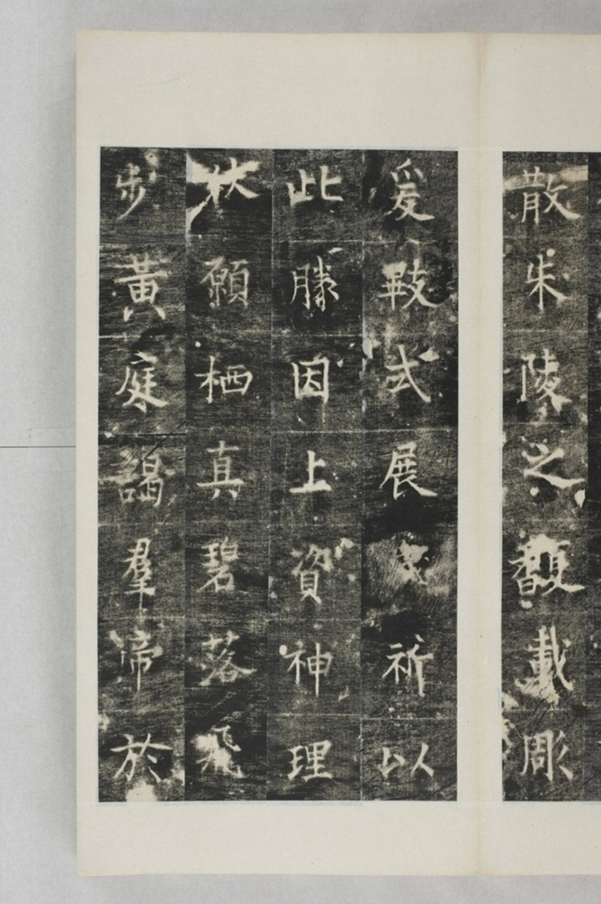 散朱陵之馥載彫
爰式展祈以
此勝因上資神理
伏願栖真碧落飛
步黃庭謁羣帝於